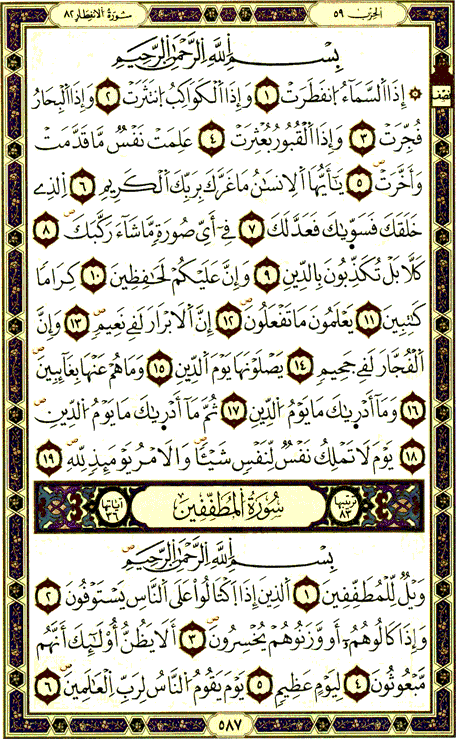 الحِزْب ٥٩
سُورَةُ الِانفِطَار ٨٢
بِسْمِ اللَّهِ الرَّحْمَٰنِ الرَّحِيمِ
نصف
۞ إِذَا اَ۬لسَّمَآءُ اُ۪نفَطَرَتْ ١ وَإِذَا اَ۬لْكَوَاكِبُ اُ۪نتَثَرَتْ ٢ وَإِذَا اَ۬لْبِحَارُ
فُجِّرَتْ ٣ وَإِذَا اَ۬لْقُبُورُ بُعْثِرَتْ ٤ عَلِمَتْ نَفْسٌ مَّا قَدَّمَتْ
وَأَخَّرَتْ ٥ يَٰٓأَيُّهَا اَ۬لِانسَٰنُ مَا غَرَّكَ بِرَبِّكَ اَ۬لْكَرِيمِ ٦ اِ۬لذِے
خَلَقَكَ فَسَوّ۪يٰكَ فَعَدَّلَكَ ٧ فِےٓ أَيِّ صُورَةٍ مَّا شَآءَ رَكَّبَكَ ٨
كَلَّا بَلْ تُكَذِّبُونَ بِالدِّينِ ٩ وَإِنَّ عَلَيْكُمْ لَحَٰفِظِينَ ١٠ كِرَامًا
كَٰتِبِينَ ١١ يَعْلَمُونَ مَا تَفْعَلُونَ ١٢ إِنَّ اَ۬لَابْرَارَ لَفِے نَعِيمٍ ١٣ وَإِنَّ
اَ۬لْفُجَّارَ لَفِے جَحِيمٍ ١٤ يَصْلَوْنَهَا يَوْمَ اَ۬لدِّينِ ١٥ وَمَا هُمْ عَنْهَا بِغَآئِبِينَ
١٦ وَمَآ أَدْر۪يٰكَ مَا يَوْمُ اُ۬لدِّينِ ١٧ ثُمَّ مَآ أَدْر۪يٰكَ مَا يَوْمُ اُ۬لدِّينِ
١٨ يَوْمَ لَا تَمْلِكُ نَفْسٌ لِّنَفْسٍ شَيْـٔٗا وَالَامْرُ يَوْمَئِذٍ لِّلهِ ١٩
ترتيبها ٨٣
سُورَةُ الْمُطَفِّفِينَ
آياتها ٣٦
بِسْمِ اللَّهِ الرَّحْمَٰنِ الرَّحِيمِ
وَيْلٌ لِّلْمُطَفِّفِينَ ١ اَ۬لذِينَ إِذَا اَ۪كْتَالُوا۟ عَلَى اَ۬لنَّاسِ يَسْتَوْفُونَ ٢
وَإِذَا كَالُوهُمُۥٓ أَو وَّزَنُوهُمْ يُخْسِرُونَ ٣ أَلَا يَظُنُّ أُو۟لَٰٓئِكَ أَنَّهُم
مَّبْعُوثُونَ ٤ لِيَوْمٍ عَظِيمٍ ٥ يَوْمَ يَقُومُ اُ۬لنَّاسُ لِرَبِّ اِ۬لْعَٰلَمِينَ ٦
٥٨٧